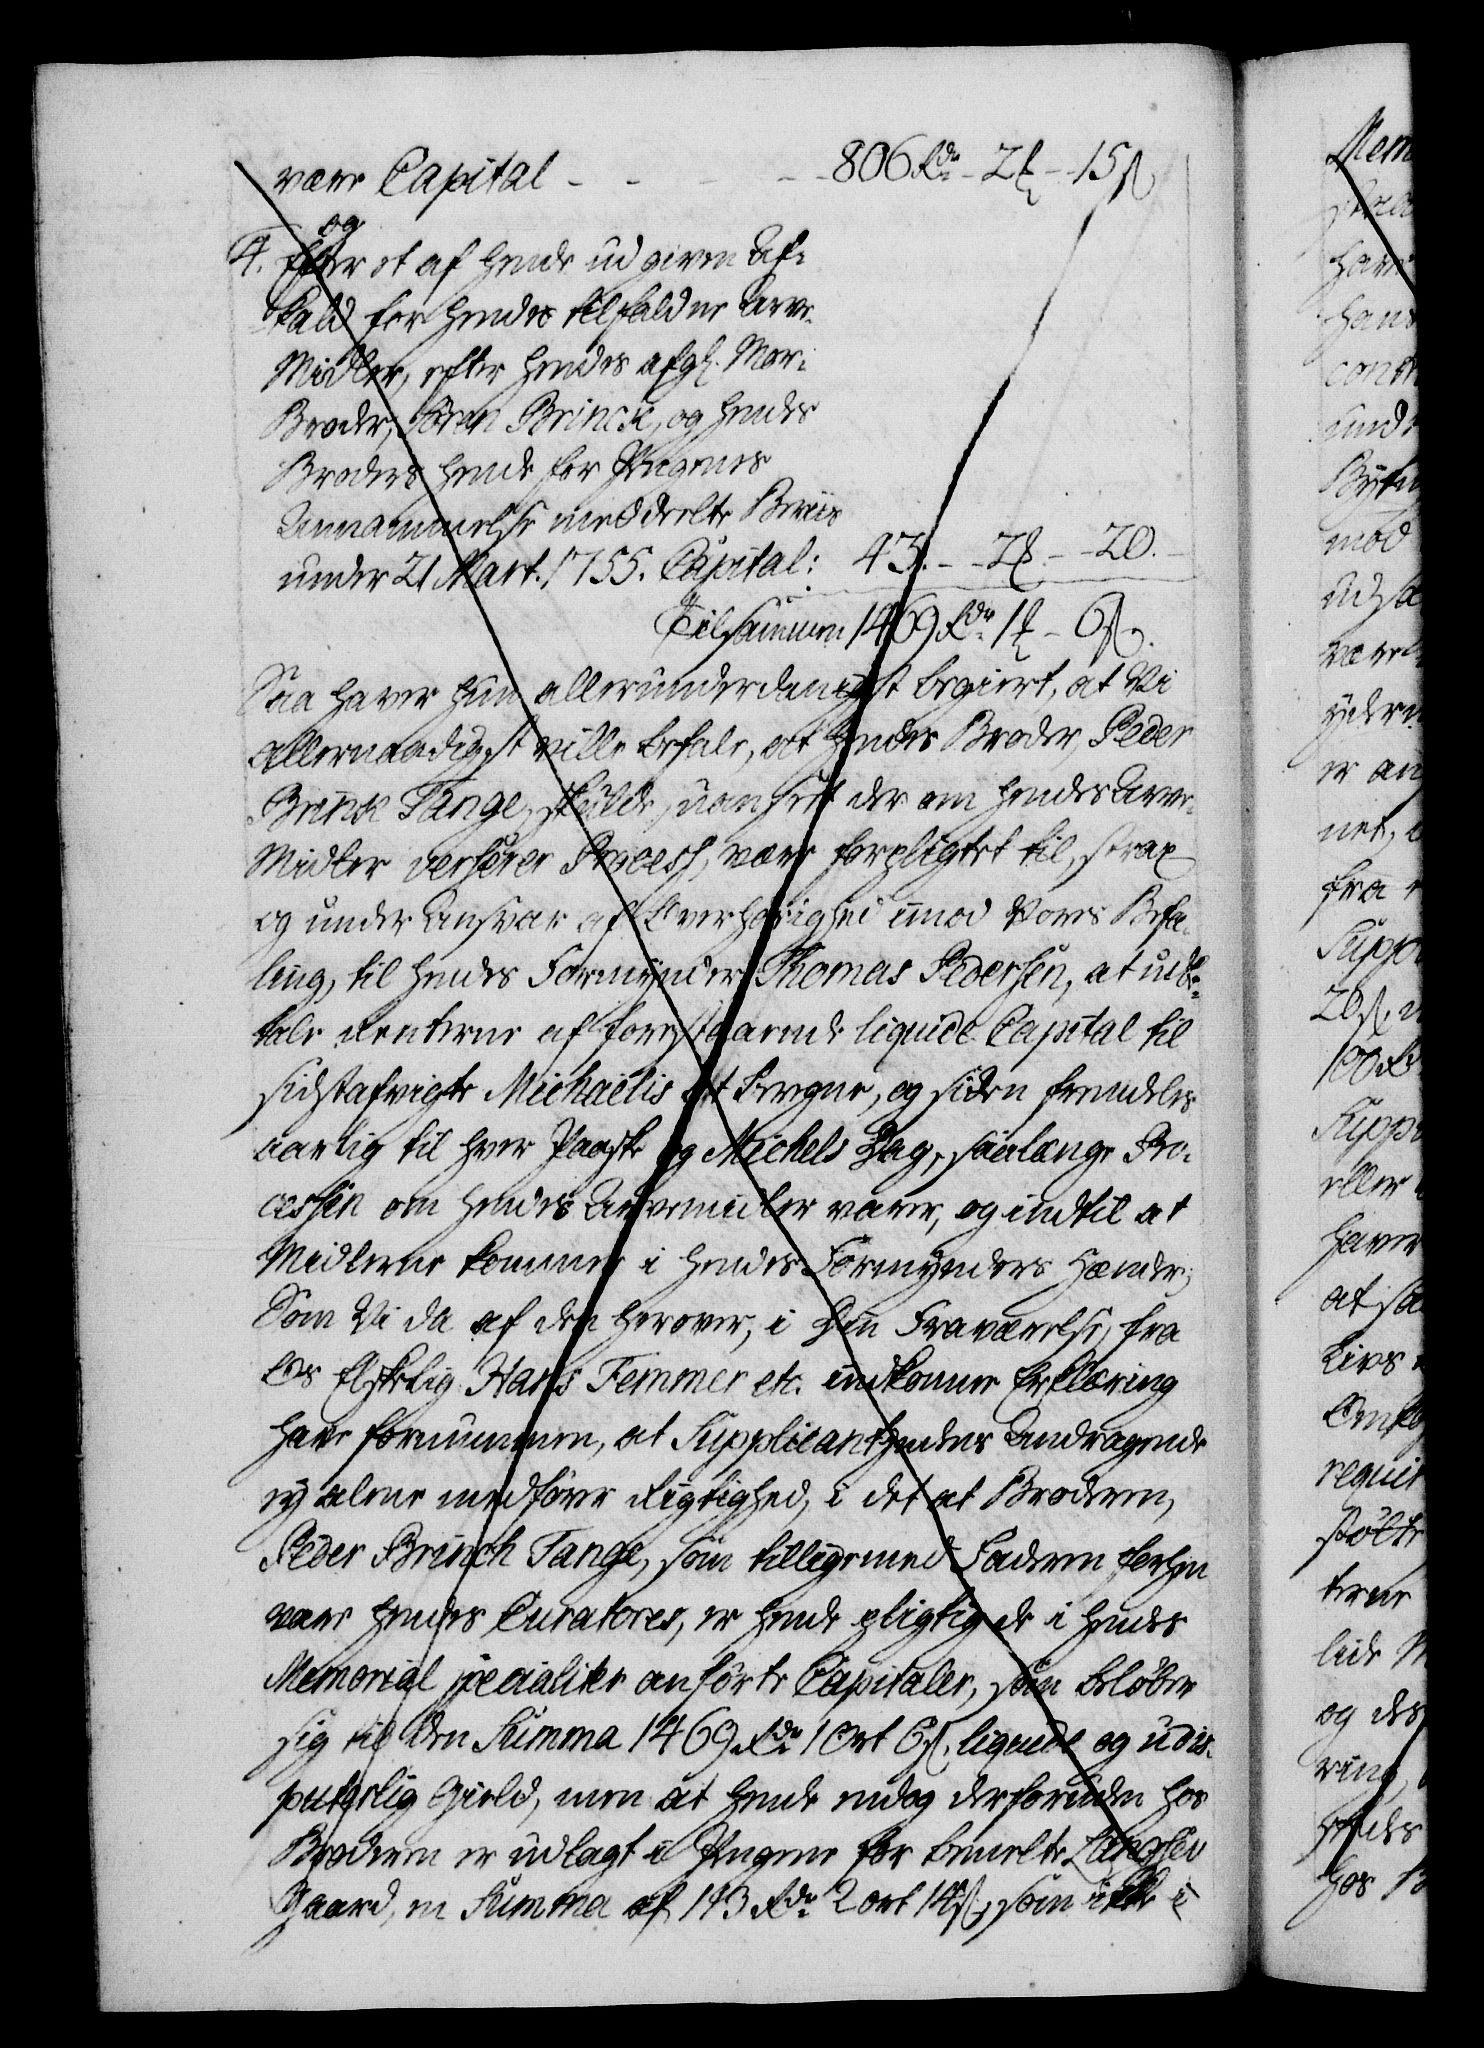 være Capital - - - - - 806 Rdr - 2 ₰ - 15 ß
og
4. Efter et af hende udgiven Af-
kald for hendes tilfaldne Arve-
Midler, efter hendes afgl. Mor-
Broder, Sören Brinck, og hendes
Broders hende for Pengenes
Annammelse meddeelte Beviis
under 21 Mart. 1755. Capital: 43. - 2 ₰ - 20. -
Tilsammen 1469 Rdr 1 ₰ - 6 ß.
Saa haver hun allerunderdanigst begiert, at Vi
allernaadigst ville befale, at hendes Broder, Peder
Brinck Tange, skulde, uanseet der om hendes Arve-
Midler verserer Process, være forpligtet til, strax
og under Ansvar af Overhørighed imod Vores Befa-
ling, til hendes Formynder Thomas Pedersen, at udbe-
tale Renterne af forestaaende liquide Capital til
sidstafvigte Michaelis at beregne, og siden fremdeles
aarlig til hver Paaske og Michels Dag, saalænge Pro-
cessen om hendes Arvemidler varer, og indtil at
Midlerne kommer i hendes Formynders Hænder;
Som Vi da af den herover, i Din Fraværelse, fra
Os Elskelig Hans Femmer etc. indkomne Erklæring
have fornummen, at Supplicantindens Andragende
ey alene medfører Rigtighed, i det at Broderen,
Peder Brinch Tange, som tilligemed Faderen forhen
vare hendes Curatores, er hende pligtig de i hendes
Memorial specialiter anførte Capitaler, som beløber
sig til den Summa 1469 Rdr 1 Ort 6 ß. liquide og udis-
puterlig Gield, men at hende endog derforuden hos
Broderen er udlagt i Pengene for bemelte
Gaard, en Summa af 143 Rdr 2 ort 14 ß, som ikke i